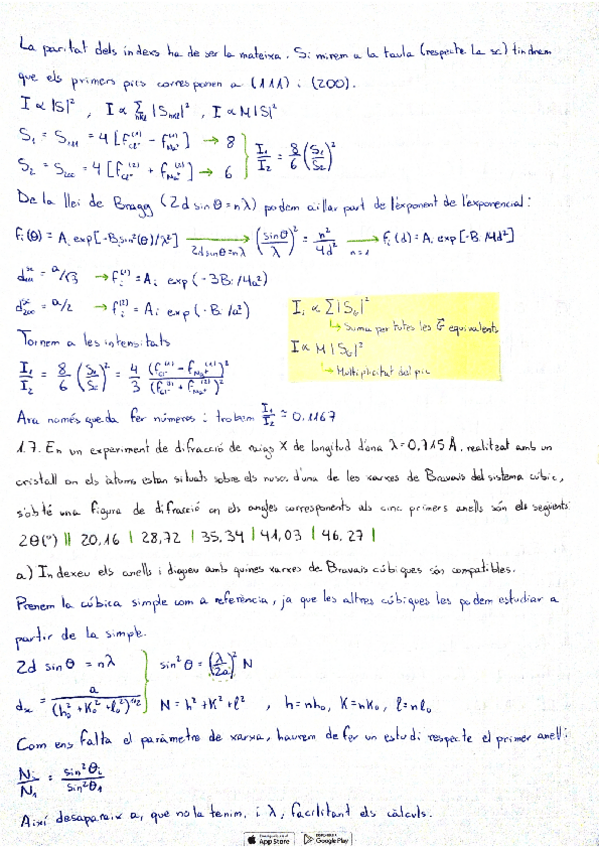 La paritat dels índexs ha de ser la mateixa. Si mirem a la taula (respecte la sc) tindrem
que els primers pics corresponen a (111) i (200).
I ∝ |S|² , I ∝ Σ_hkl |S_hkl|² , I ∝ M|S|²
S₁ = S₁₁₁ = 4 [f_Cl⁻^(1) - f_Na⁺^(1)] → 8
S₂ = S₂₀₀ = 4 [f_Cl⁻^(2) + f_Na⁺^(2)] → 6 } I₁/I₂ = 8/6 (S₁/S₂)²
De la llei de Bragg (2d sinθ = nλ) podem aïllar part de l'exponent de l'exponencial:
fᵢ(θ) = Aᵢ exp[-Bᵢ sin²(θ)/λ²] → 2d sinθ = nλ (sinθ/λ)² = n²/4d² → n=1 fᵢ(d) = Aᵢ exp[-Bᵢ/4d²]
d₁₁₁ = a/√3 → fᵢ^(1) = Aᵢ exp(-3Bᵢ/4a²)
d₂₀₀ = a/2 → fᵢ^(2) = Aᵢ exp(-Bᵢ/a²)
Iᵢ ∝ Σ|S_G|²
↳ Suma per totes les G equivalents
I ∝ M|S_G|²
↳ Multiplicitat del pic
Tornem a les intensitats
I₁/I₂ = 8/6 (S₁/S₂)² = 4/3 (f_Cl⁻^(1) - f_Na⁺^(1))²/(f_Cl⁻^(2) + f_Na⁺^(2))²
Ara només queda fer números i trobem I₁/I₂ ≈ 0.1167
1.7. En un experiment de difracció de raigs X de longitud d'ona λ=0,715 Å, realitzat amb un
cristall on els àtoms estan situats sobre els nusos d'una de les xarxes de Bravais del sistema cúbic,
s'obté una figura de difracció on els angles corresponents als cinc primers anells són els següents:
2θ(°) || 20,16 | 28,72 | 35,34 | 41,03 | 46,27 |
a) Indexeu els anells i digueu amb quines xarxes de Bravais cúbiques són compatibles.
Prenem la cúbica simple com a referència, ja que les altres cúbiques les podem estudiar a
partir de la simple.
2d sinθ = nλ } sin²θ = (λ/2a)² N
d = a/(h₀²+K₀²+l₀²)^1/2 } N = h²+K²+l² , h=nh₀, K=nK₀, l=nl₀
Com ens falta el paràmetre de xarxa, haurem de fer un estudi respecte el primer anell:
Nᵢ/N₁ = sin²θᵢ/sin²θ₁
Així desapareix a, que no la tenim, i λ, facilitant els càlculs.
App Store Google Play